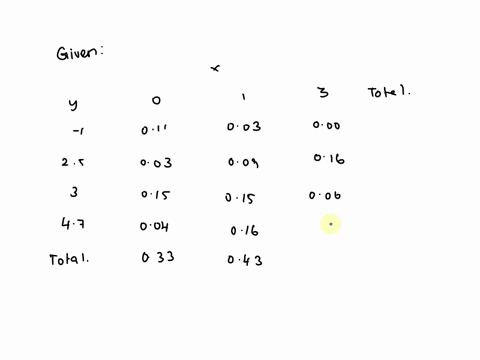 Given:
x
y 0 1 3 Total.
-1 0.11 0.03 0.00
2.5 0.03 0.09 0.16
3 0.15 0.15 0.06
4.7 0.04 0.16
Total. 0.33 0.43